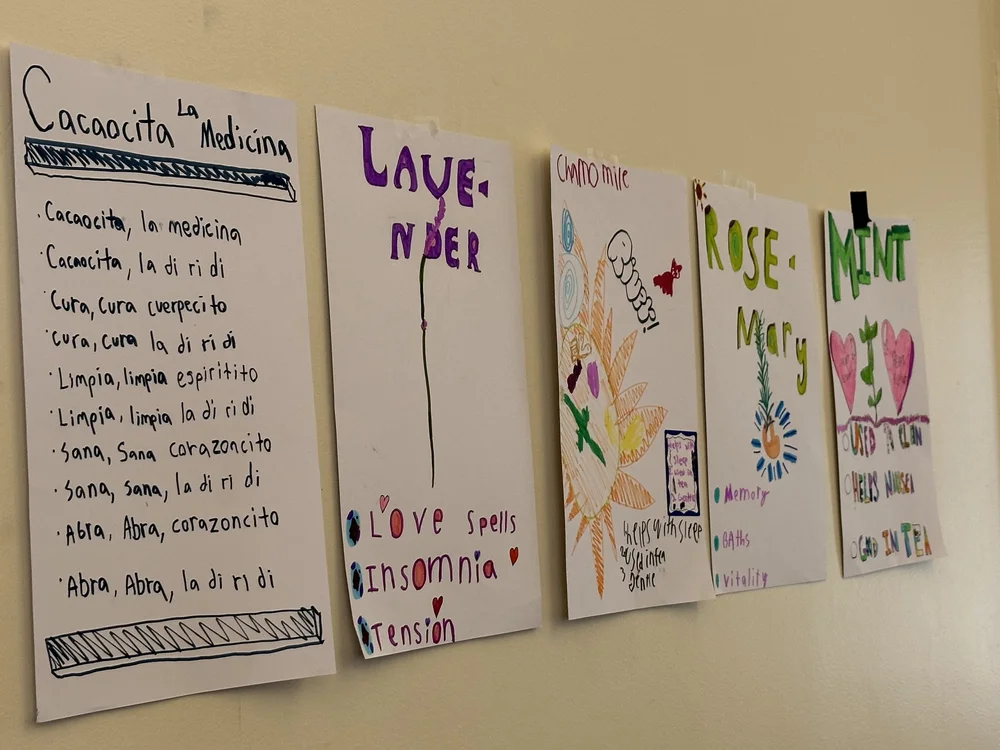 Cacaocita La Medicina
· Cacaocita, la medicina
Cacaocita, la di ri di
Cura, Cura cuerpecito
Cura, cura la di ri di
· Limpia, limpia espiritito
· Limpia, limpia la di ri di
· Sana, Sana corazoncito
· Sana, sana, la di ri di
· Abra, Abra, corazoncito
· Abra, Abra, la di ri di
LAVE-
NDER
LOVE Spells
Insomnia
Tension
Chamomile
helps with
sleep
used in
tea
helps with sleep
2 used in tea
3
ROSE-
Mary
Memory
BAths
Vitality
MINT
I
USED TO CLEAN
HELPS NAUSEA
GOOD IN TEA